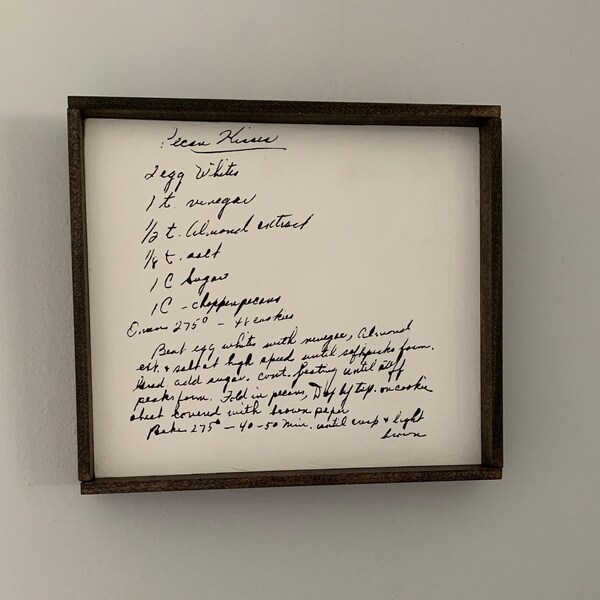 Pecan Kisses
2 egg Whites
1 t. vinegar
1/2 t. Almond extract
1/8 t. salt
1 C Sugar
1 C - chopped pecans
Oven 275° - 48 cookies
Beat egg white with vinegar, Almond
ext. & salt at high speed until soft peaks form.
add sugar. cont. beating until stiff
peaks form. Fold in pecans, Drop by tsp. on cookie
sheet covered with brown paper
Bake 275° - 40-50 min. until crisp & light
brown